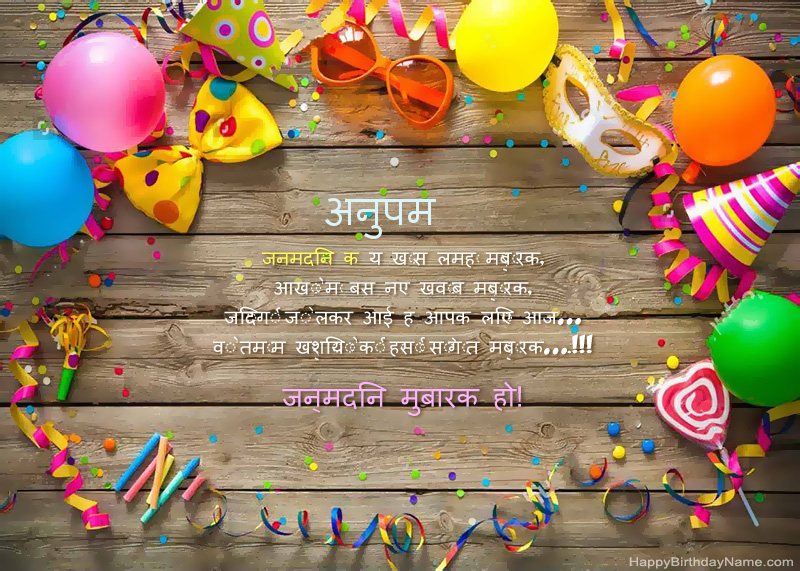 अनुपम
जनमदनि क य खास लमहा मबारक,
आखों में बस नए खवाब मबारक,
जदिगी जो लेकर आई ह आपक लएि आज...
वो तमाम खुशयिों की हसीं सौगात मबारक....!!!
जन्मदनि मुबारक हो!
HappyBirthdayName.com